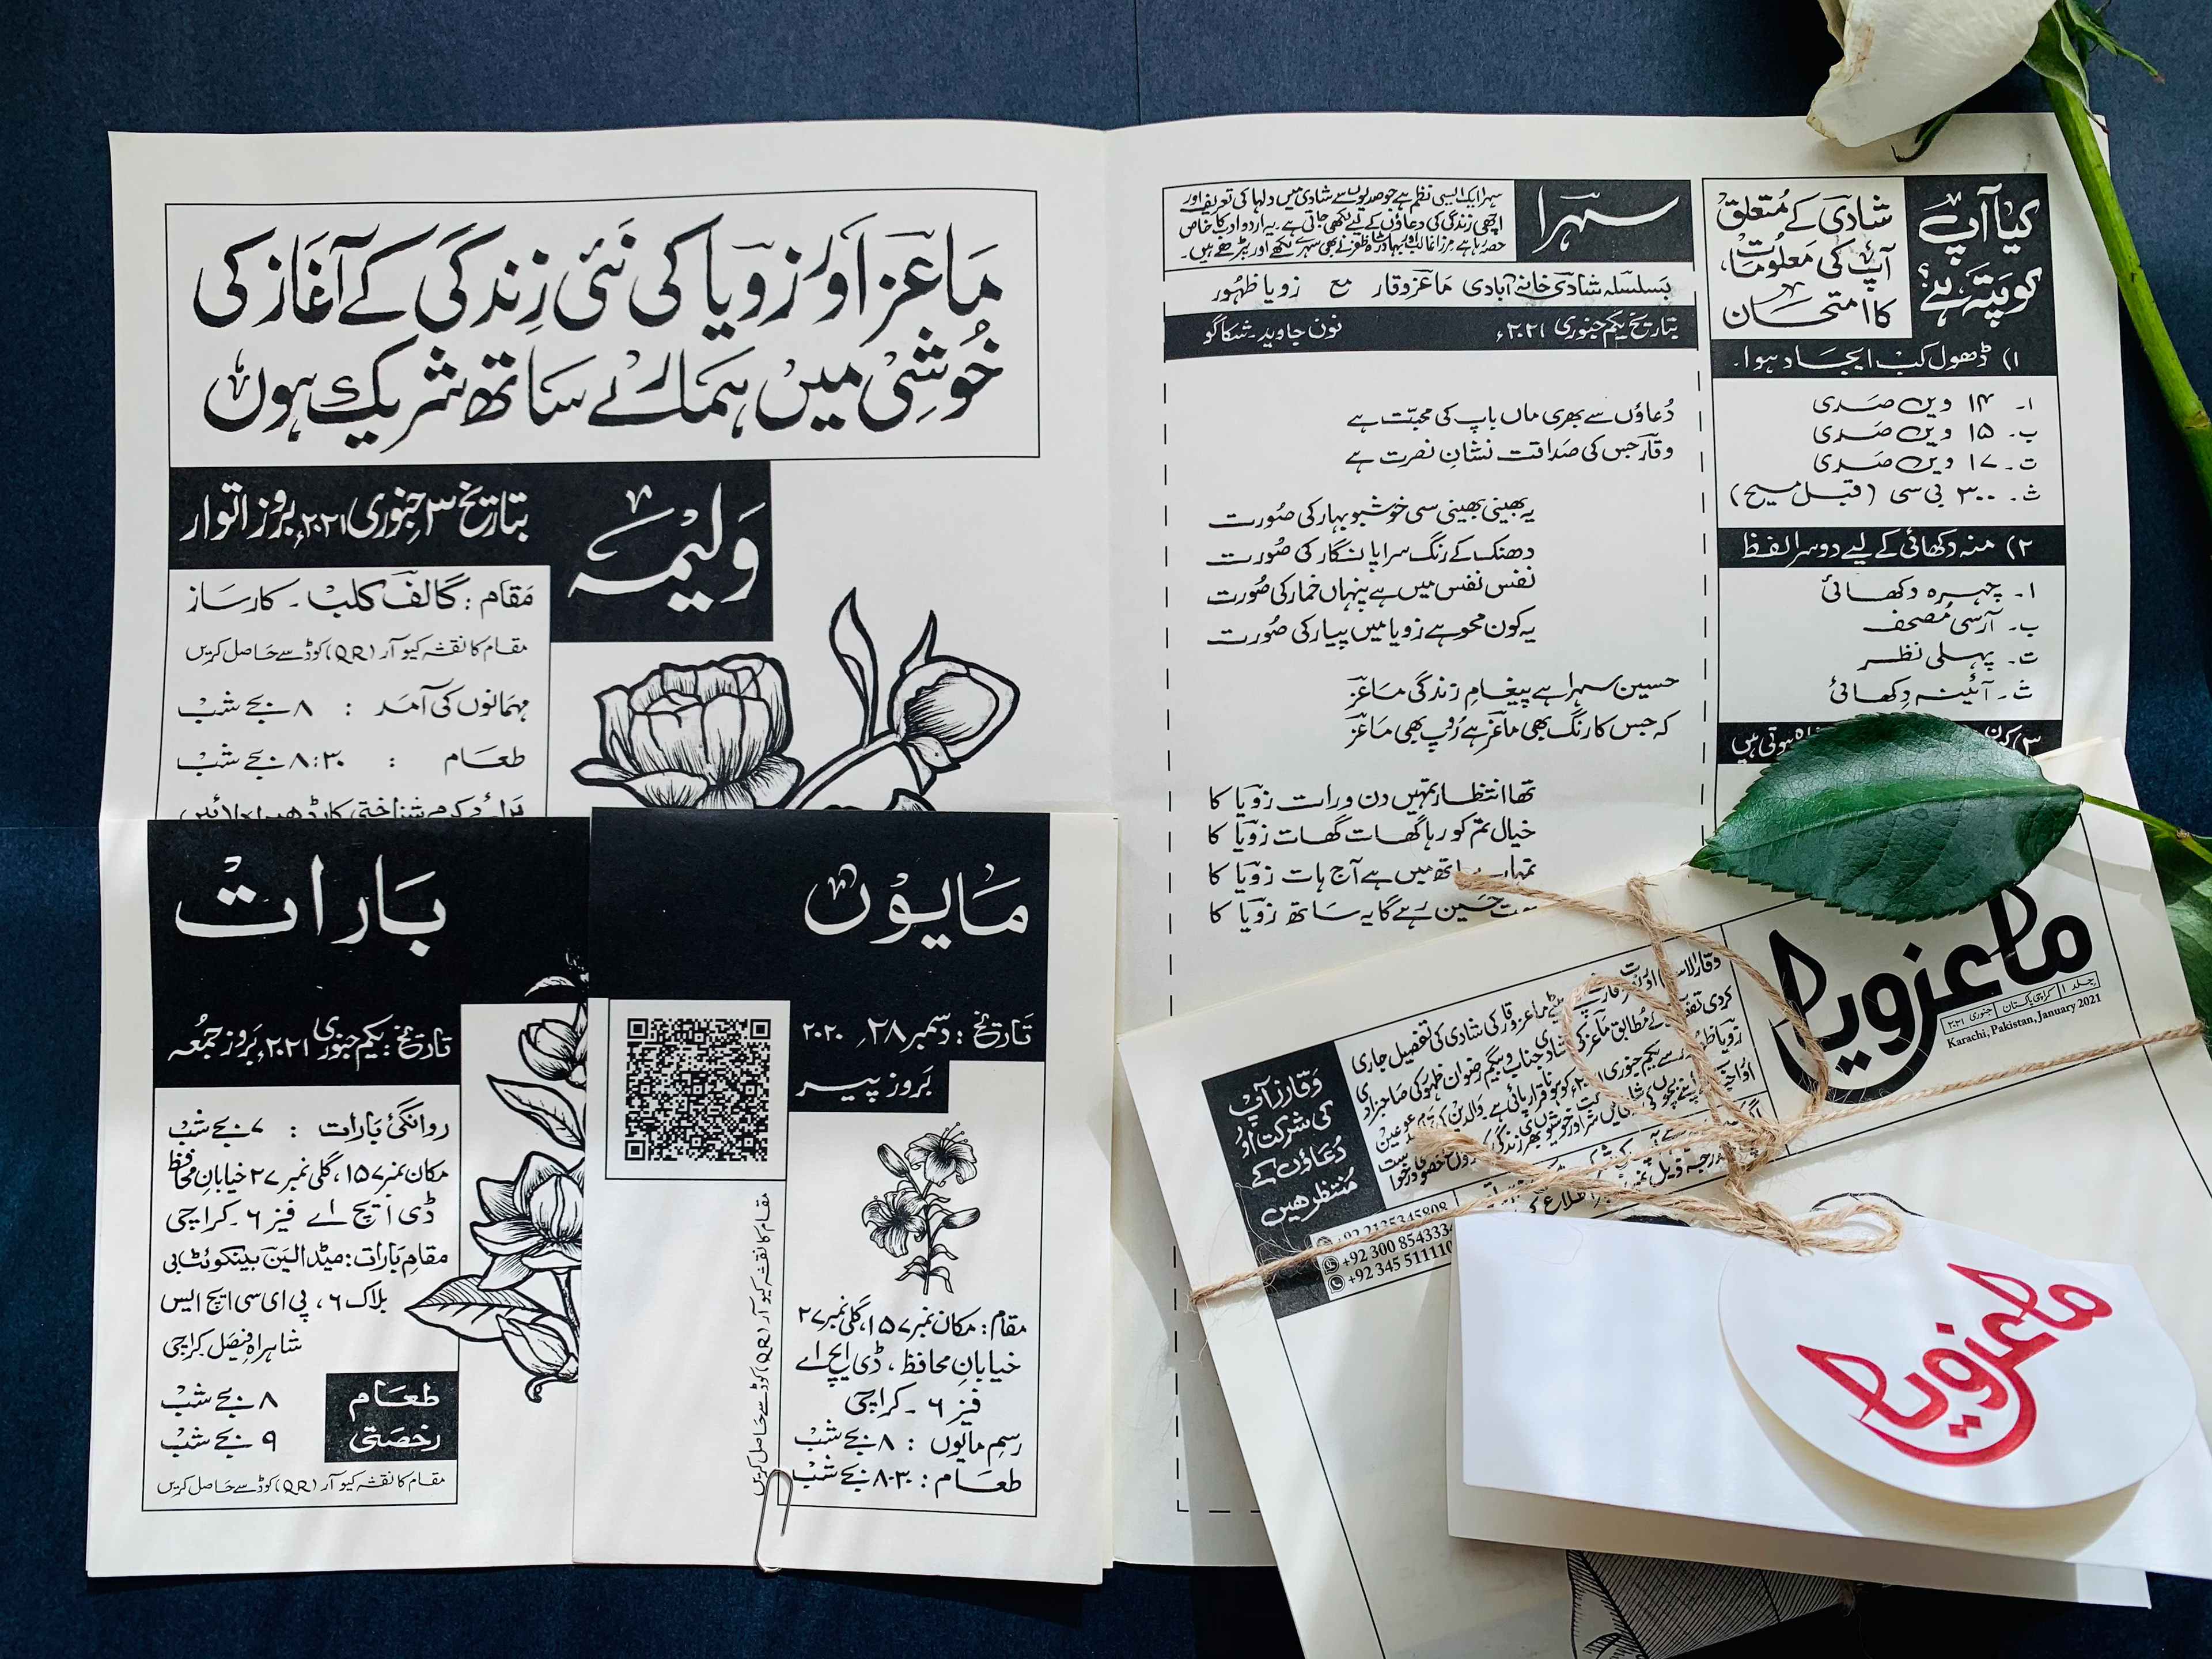 ماعز اور زویا کی نئی زندگی کے آغاز کی
خوشی میں ہمارے ساتھ شریک ہوں
ولیمہ
بتاریخ ۳ جنوری ۲۰۲۱ء بروز اتوار
مقام : گالف کلب - کارساز
مقام کا نقشہ کیو آر (QR) کوڈ سے حاصل کریں
مہمانوں کی آمد : ۸ بجے شب
طعام : ۸:۳۰ بجے شب
برائے کرم شناختی کارڈ ہمراہ لائیں
بارات
تاریخ : یکم جنوری ۲۰۲۱ء، بروز جمعہ
روانگئ بارات : ۷ بجے شب
مکان نمبر ۱۵۷، گلی نمبر ۲۷ خیابانِ محافظ
ڈی ایچ اے فیز ۶ - کراچی
مقامِ بارات : میڈالین بینکوئٹ بی
بلاک ۶ ، پی ای سی ایچ ایس
شاہراہِ فیصل کراچی
طعام ۸ بجے شب
رخصتی ۹ بجے شب
مقام کا نقشہ کیو آر (QR) کوڈ سے حاصل کریں
مایوں
تاریخ : دسمبر ۲۸، ۲۰۲۰
بروز پیر
مقام کا نقشہ کیو آر (QR) کوڈ سے حاصل کریں
مقام : مکان نمبر ۱۵۷، گلی نمبر ۲۷
خیابانِ محافظ ، ڈی ایچ اے
فیز ۶ - کراچی
رسمِ مایوں : ۸ بجے شب
طعام : ۸-۳۰ بجے شب
سہرا
سہرا ایک ایسی نظم ہے جو صدیوں سے شادی میں دولہا کی تعریف اور
اچھی زندگی کی دعاؤں کے لیے لکھی جاتی ہے۔ یہ اردو ادب کا خاص
حصہ رہا ہے مرزا غالب اور بہادر شاہ ظفر نے بھی سہرے لکھے اور پڑھے ہیں۔
بسلسلہ شادی خانہ آبادی ماعز وقار مع زویا ظہور
بتاریخ یکم جنوری ۲۰۲۱ء نون جاوید - شکاگو
دُعاؤں سے بھری ماں باپ کی محبّت ہے
وقار جس کی صداقت نشانِ نصرت ہے
یہ بھینی بھینی سی خوشبو بہار کی صُورت
دھنک کے رنگ سراپا نگار کی صُورت
نفس نفس میں ہے پنہاں خمار کی صُورت
یہ کون محو ہے زویا میں پیار کی صُورت
حسین سہرا ہے پیغامِ زندگی ماعز
کہ جس کا رنگ بھی ماعز ہے رُوپ بھی ماعز
تھا انتظار تمہیں دن و رات زویا کا
خیال تم کو رہا گھات گھات زویا کا
تمہارے ہاتھ میں ہے آج ہات زویا کا
حسین رہے گا یہ ساتھ زویا کا
کیا آپ
کو پتہ ہے؟
شادی کے مُتعلق
آپ کی معلومات
کا امتحان
۱) ڈھول کب ایجاد ہوا۔
ا۔ ۱۴ ویں صدی
ب۔ ۱۵ ویں صدی
ت۔ ۱۷ ویں صدی
ث۔ ۳۰۰ بی سی (قبل مسیح)
۲) منہ دکھائی کے لیے دوسرا لفظ
ا۔ چہرہ دکھائی
ب۔ آرسی مُصحف
ت۔ پہلی نظر
ث۔ آئینہ دِکھائی
۳) کن
ہوتی ہیں
ماعزویا
جلد ۱ کراچی پاکستان جنوری ۲۰۲۱
Karachi, Pakistan, January 2021
ماعز وقار کی شادی کی تفصیل جاری
کے مُطابق ماعز کی شادی جناب و بیگم رضوان ظہور کی صاحبزادی
زویا ظہور سے یکم جنوری ۲۰۲۱ء کو ہونا قرار پائی ہے
وقار زر آپ
کی شرکت اور
دُعاؤں کے
مُنتظر ھیں
+92 2135345808
+92 300 8543334
+92 345 511110
ماعزویا